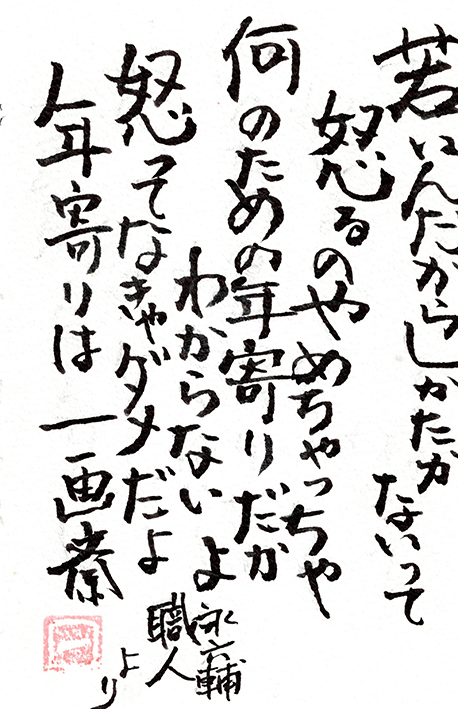 若いんだからしかたが
ないって
怒るのやめちゃっちゃ
何のための年寄りだか
わからないよ
怒ってなきゃダメだよ
年寄りは
一画斎
永六輔
職人
より